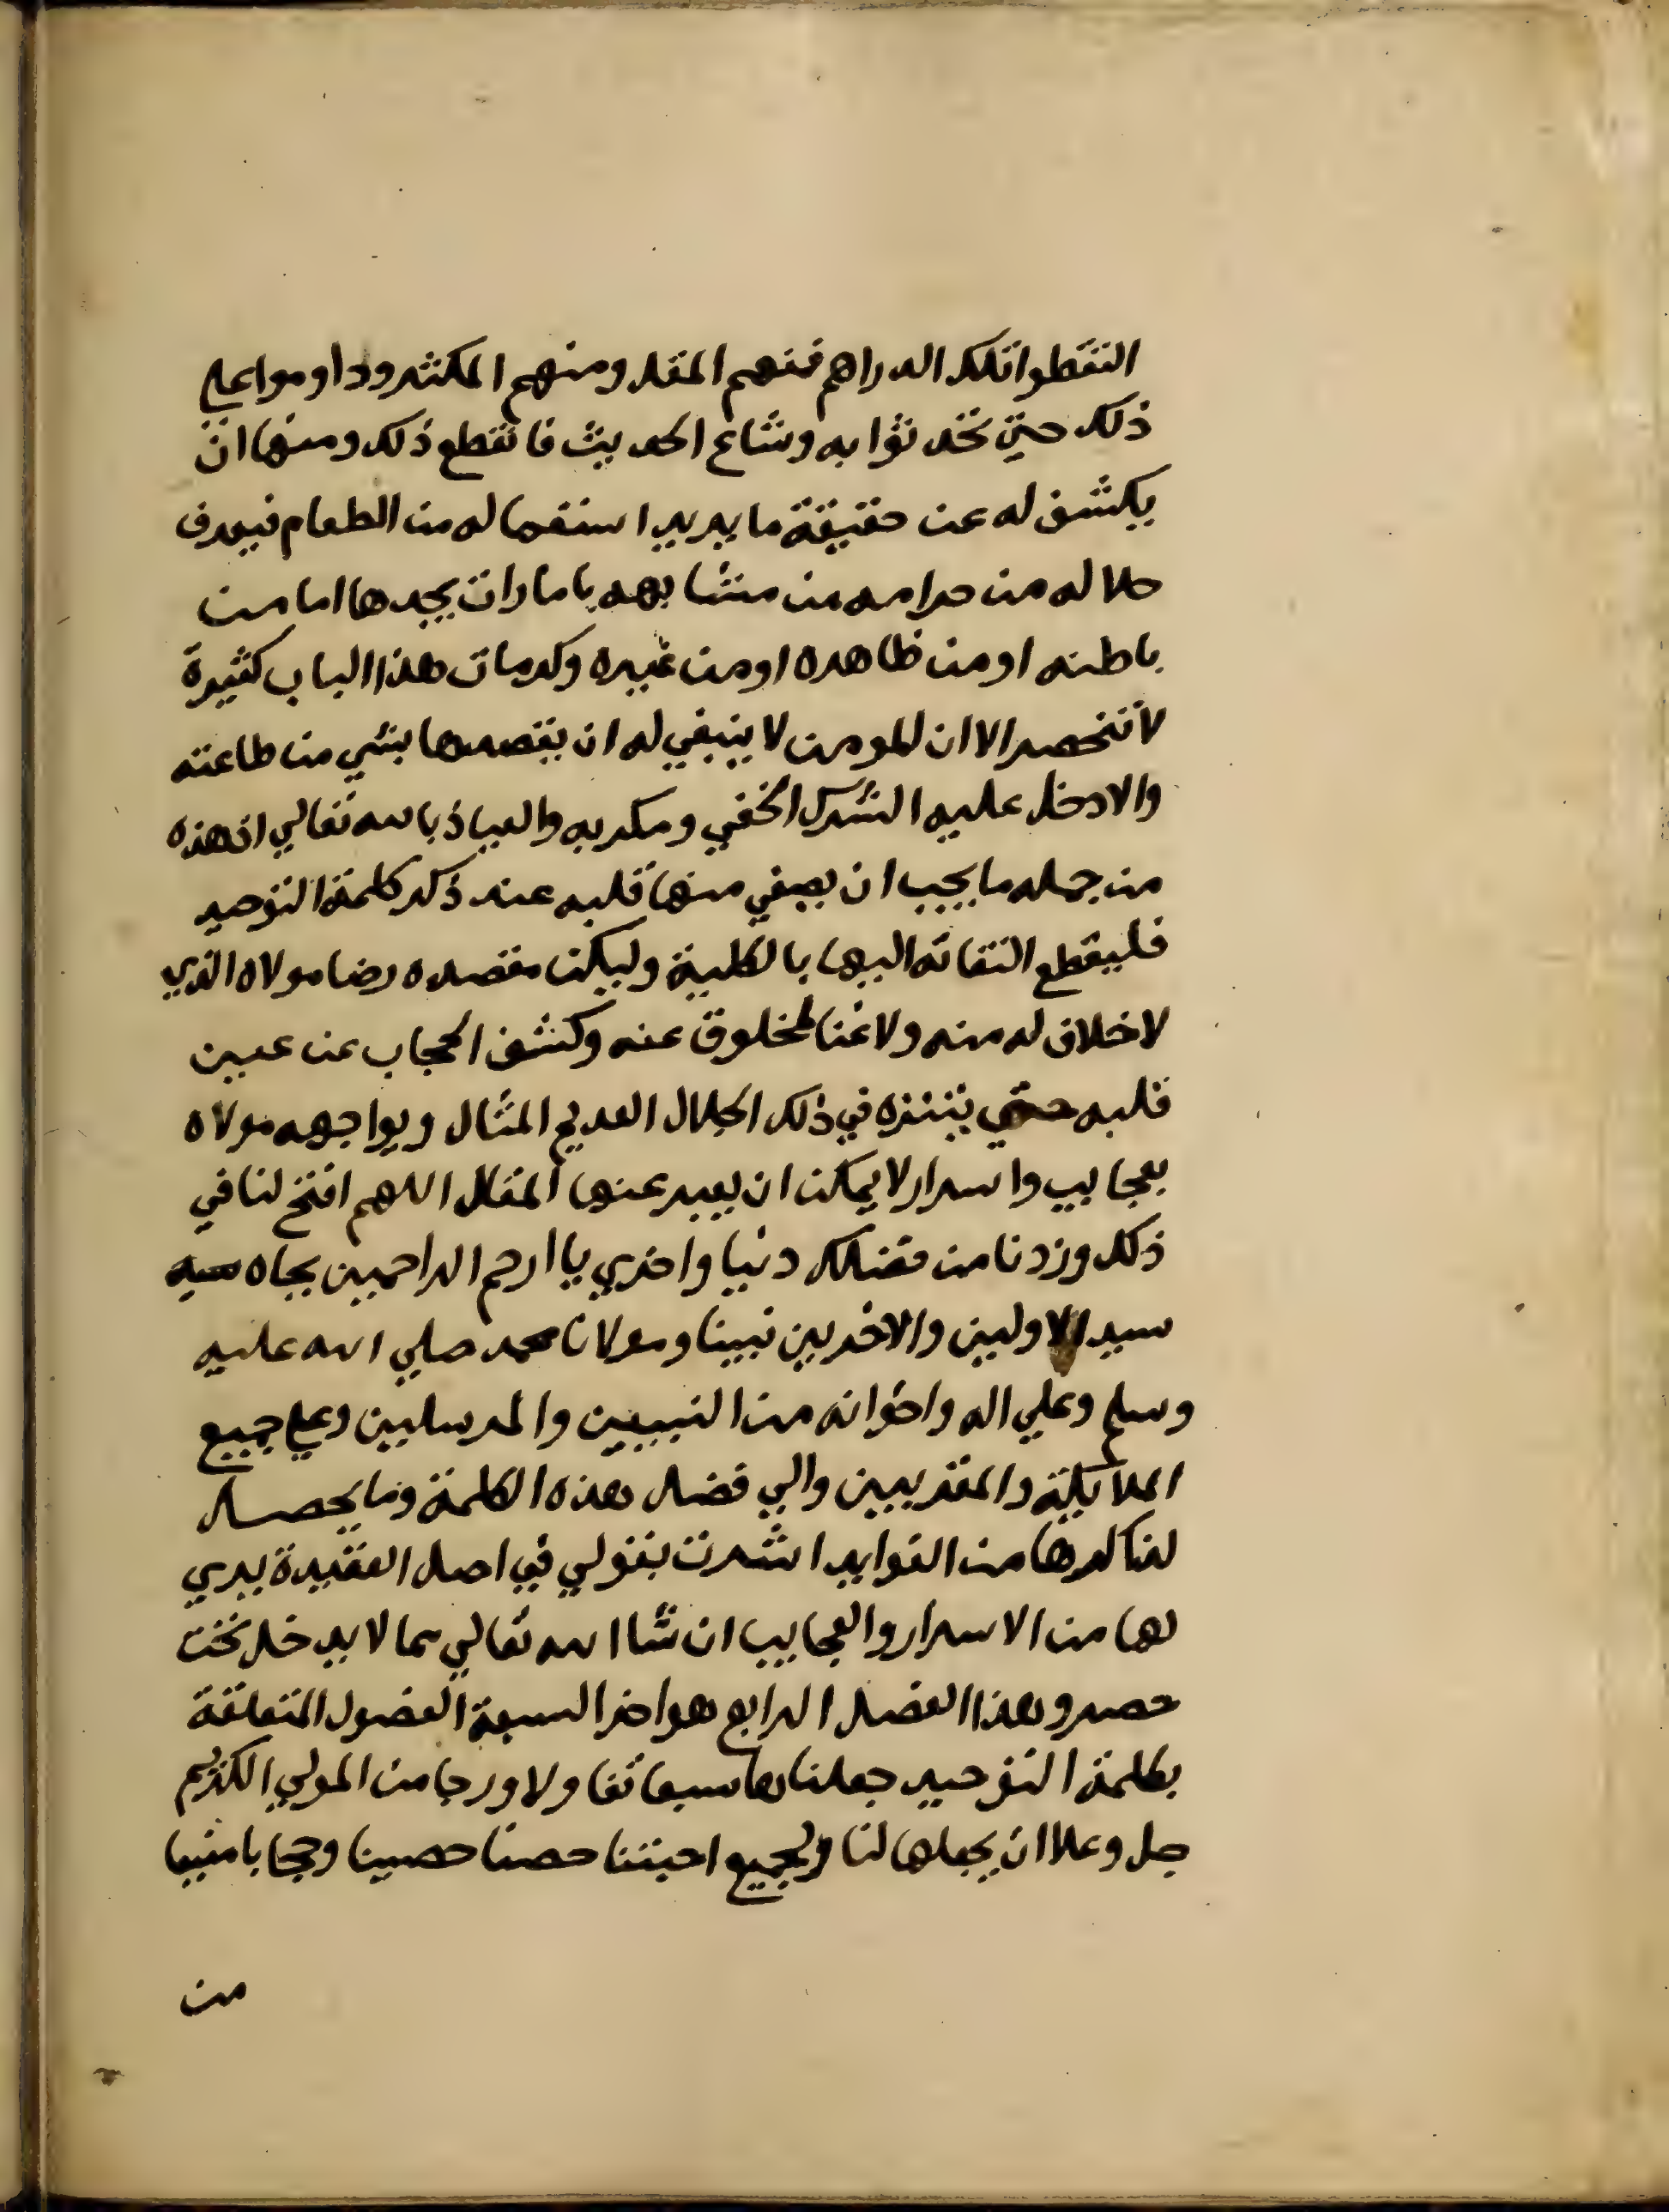 التقطوا تلك الدراهم فمنهم المقل ومنهم المكثر وداوموا علي
ذلك حتي تحدثوا به وشاع الحديث فانقطع ذلك ومنها ان
يكشف له عن حقيقة ما يريد استعماله من الطعام فيعرف
حلاله من حرامه من متشابهه بامارات يجدها اما من
باطنه او من ظاهره او من غيره وكرمات هذا الباب كثيرة
لا تنحصر الا ان المومن لا ينبغي له ان يقصدها بشي من طاعته
والا دخل عليه الشرك الخفي ومكر به والعياذ بالله تعالي اذ هذه
من جمله ما يجب ان يصفي منها قلبه عند ذكر كلمة التوحيد
فليقطع التفاته اليها بالكلية وليكن مقصده رضا مولاه الذي
لا خلاف له منه ولا غنا لمخلوق عنه وكشف الحجاب عن عين
قلبه حتي يتنزه في ذلك الجلال العديم المثال ويواجهه مولاه
بعجايب واسرار لا يمكن ان يعبر عنها المقال اللهم افتح لنا في
ذلك وزدنا من فضلك دنيا واخري يا ارحم الراحمين بجاه سيد
سيد الاولين والاخرين نبينا ومولانا محمد صلي الله عليه
وسلم وعلي اله واخوانه من النبيين والمرسلين وعلي جميع
الملايكة والمقربين والي فضل هذه الكلمة وما يحصل
لذاكرها من الفوايد اشرت بقولي في اصل العقيدة يري
لها من الاسرار والعجايب ان شا الله تعالي مما لا يدخل تحت
حصر وهذا الفصل الرابع هو اخر السبعة الفصول المتعلقة
بكلمة التوحيد جعلناها سبعا تفاولا ورجا من المولي الكريم
جل وعلا ان يجعلها لنا ولجميع احبتنا حصنا حصينا وحجابا منيعا
من